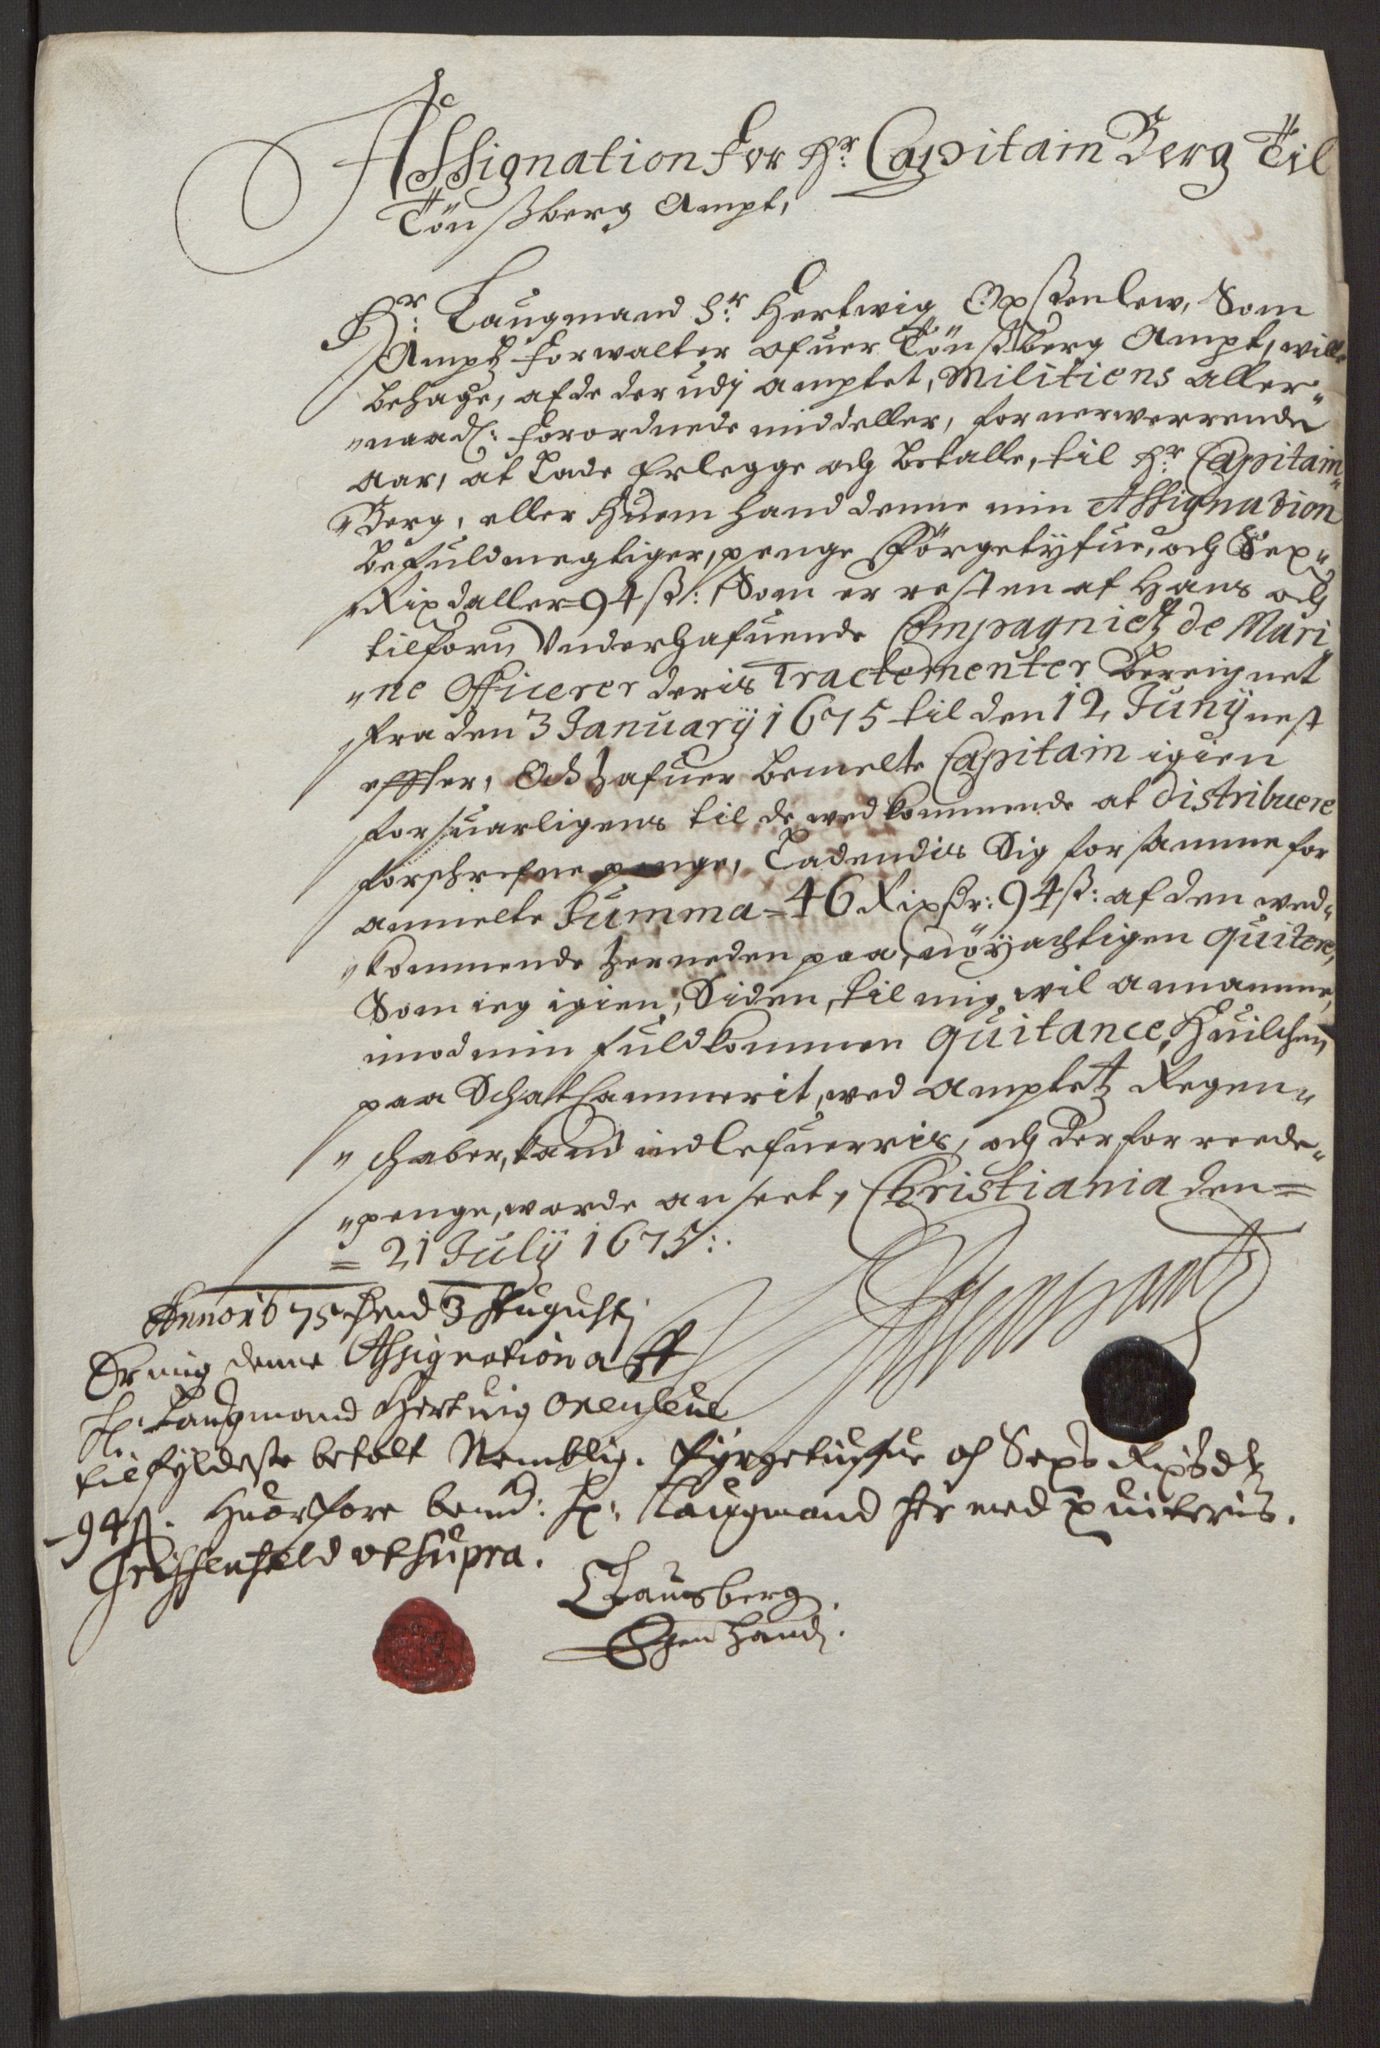 Assignation for Hr: Capitain Berg Til
Tönßberg Ampt,
Hr: Laugmand Sr: Hertwig Oxßenlew, Som
Amptz forwalter ofuer Tönßberg Ampt, wille
behage, af de der udj amptet, Militiens aller„
„naad: forordnede middeller, fornerwerrende
Aar, at lade erlegge och betalle, til Hr: Capitain„
„Berg, eller huem hand denne min Assignation
befuldmegtiger, penge Förgetyfue, och Sex„
„Rixdaller 94 ß: Som er resten af Hans och
tilforn Underhafuende Compagnietz de Mari„
„ne Officerer deris Tractementer Bereignet
fra den 3 January 1675 til den 12 Juny nest
effter, Och hafuer bemelte Capitain igien
forsuarligens til de wedkommende at distribuere
forschrefne penge, Ladendis Sig for samme for
anmelte Summa = 46 Rixdr: 94 ß: af den wed„
„kommende herneden paa, nöyachtigen quitere,
Som ieg igien, Siden, til mig wil annamme,
imod min fuldkommen Quitance, Huilchen
paa Schatkammerit, wed Amptetz Regen„
„schaber, kand indlefuerris, och derfor reede„
„penge, worde anseet, Christiania den =
= 21 July 1675:
Anno 1675 dend 3 Augustj
Er mig denne Assignation aff
Hr: Laugmand Hertuig Oxenleue
tilfyldeste betalt Nemblig. Fyrgetiufue och Sex Rixdlr
94 ß. Huorfore bemd: Hr: Laugmand her med quiteris.
Griffenfeld ut Supra.
Clausberg
Egen Hand.